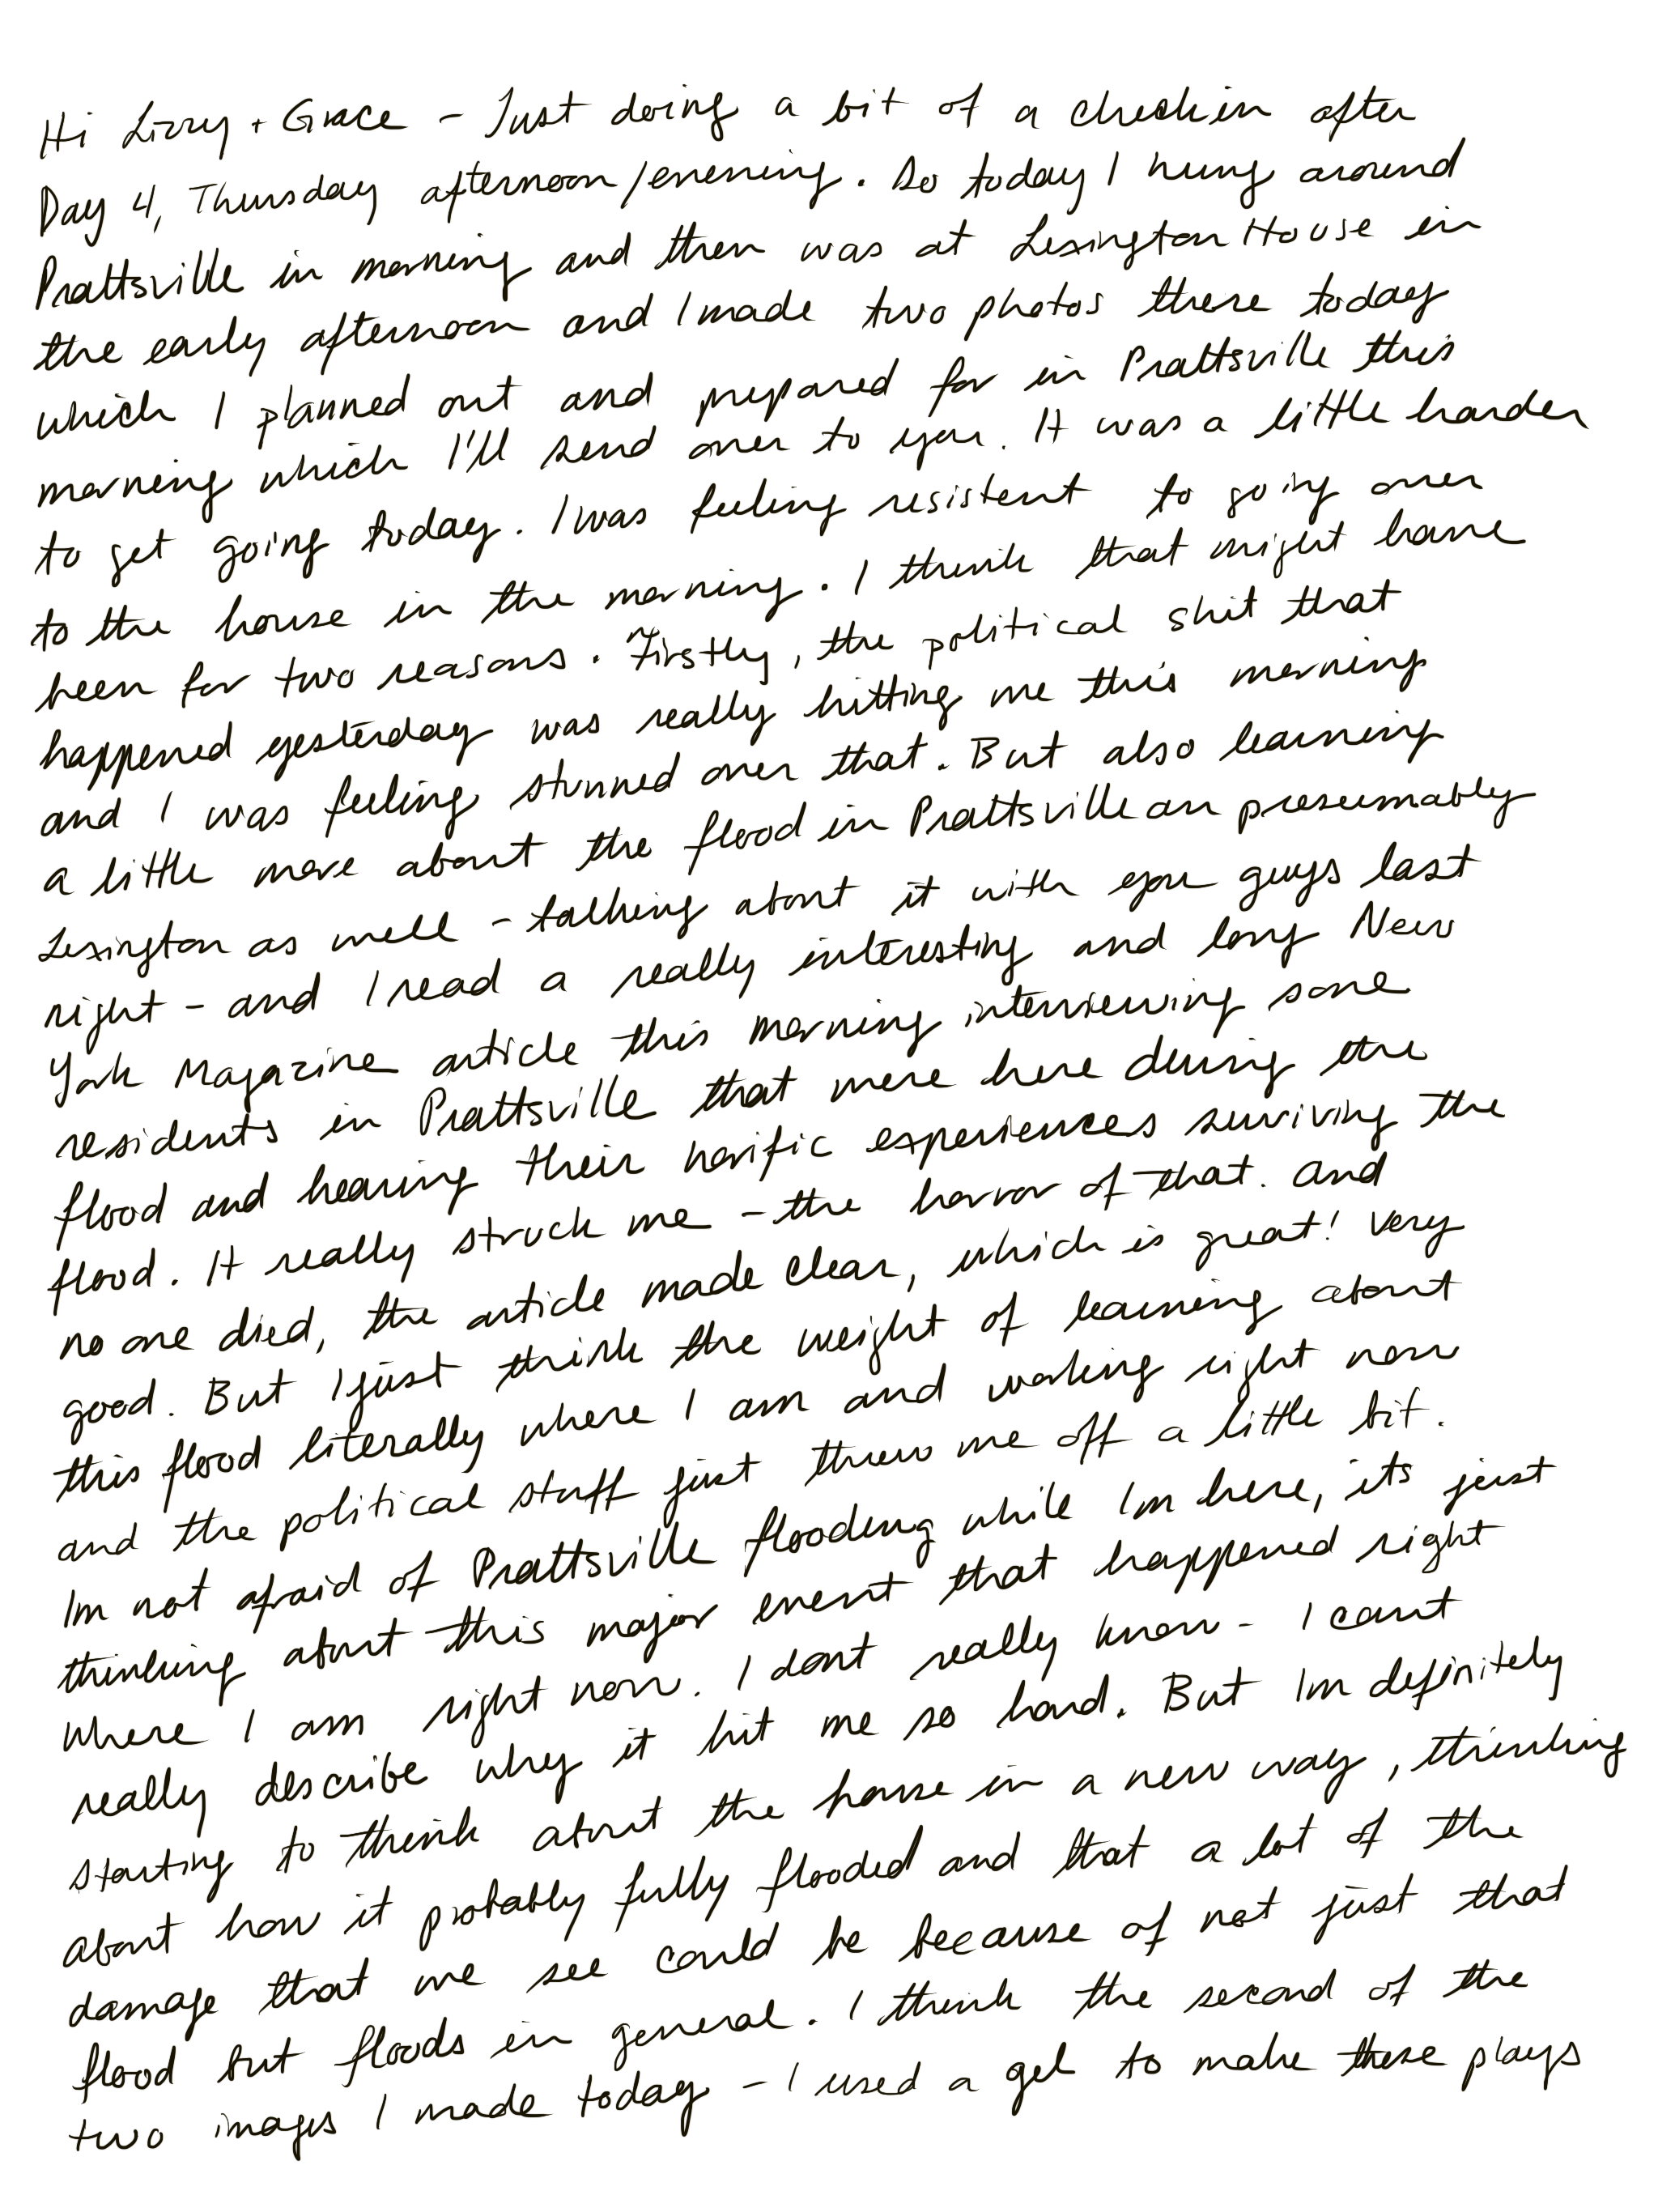 Hi Lizzy + Grace - Just doing a bit of a check in after
Day 4, Thursday afternoon/evening. So today I hung around
Prattsville in morning and then was at Lexington House in
the early afternoon and I made two photos there today
which I planned out and prepared for in Prattsville this
morning which I'll send over to you. It was a little harder
to get going today. I was feeling resistent to going over
to the house in the morning. I think that might have
been for two reasons. Firstly, the political shit that
happened yesterday was really hitting me this morning
and I was feeling stunned over that. But also learning
a little more about the flood in Prattsville an presumably
Lexington as well - talking about it with you guys last
night - and I read a really interesting and long New
York Magazine article this morning interviewing some
residents in Prattsville that were here during the
flood and hearing their horific experiences surviving the
flood. It really struck me - the horror of that. And
no one died, the article made clear, which is great! Very
good. But I just think the weight of learning about
this flood literally where I am and working right now
and the political stuff just threw me off a little bit.
Im not afraid of Prattsville flooding while Im here, its just
thinking about this major event that happened right
where I am right now. I dont really know - I cant
really describe why it hit me so hard. But Im definitely
starting to think about the house in a new way, thinking
about how it probably fully flooded and that a lot of the
damage that we see could be because of not just that
flood but floods in general. I think the second of the
two images I made today - I used a gel to make these plays